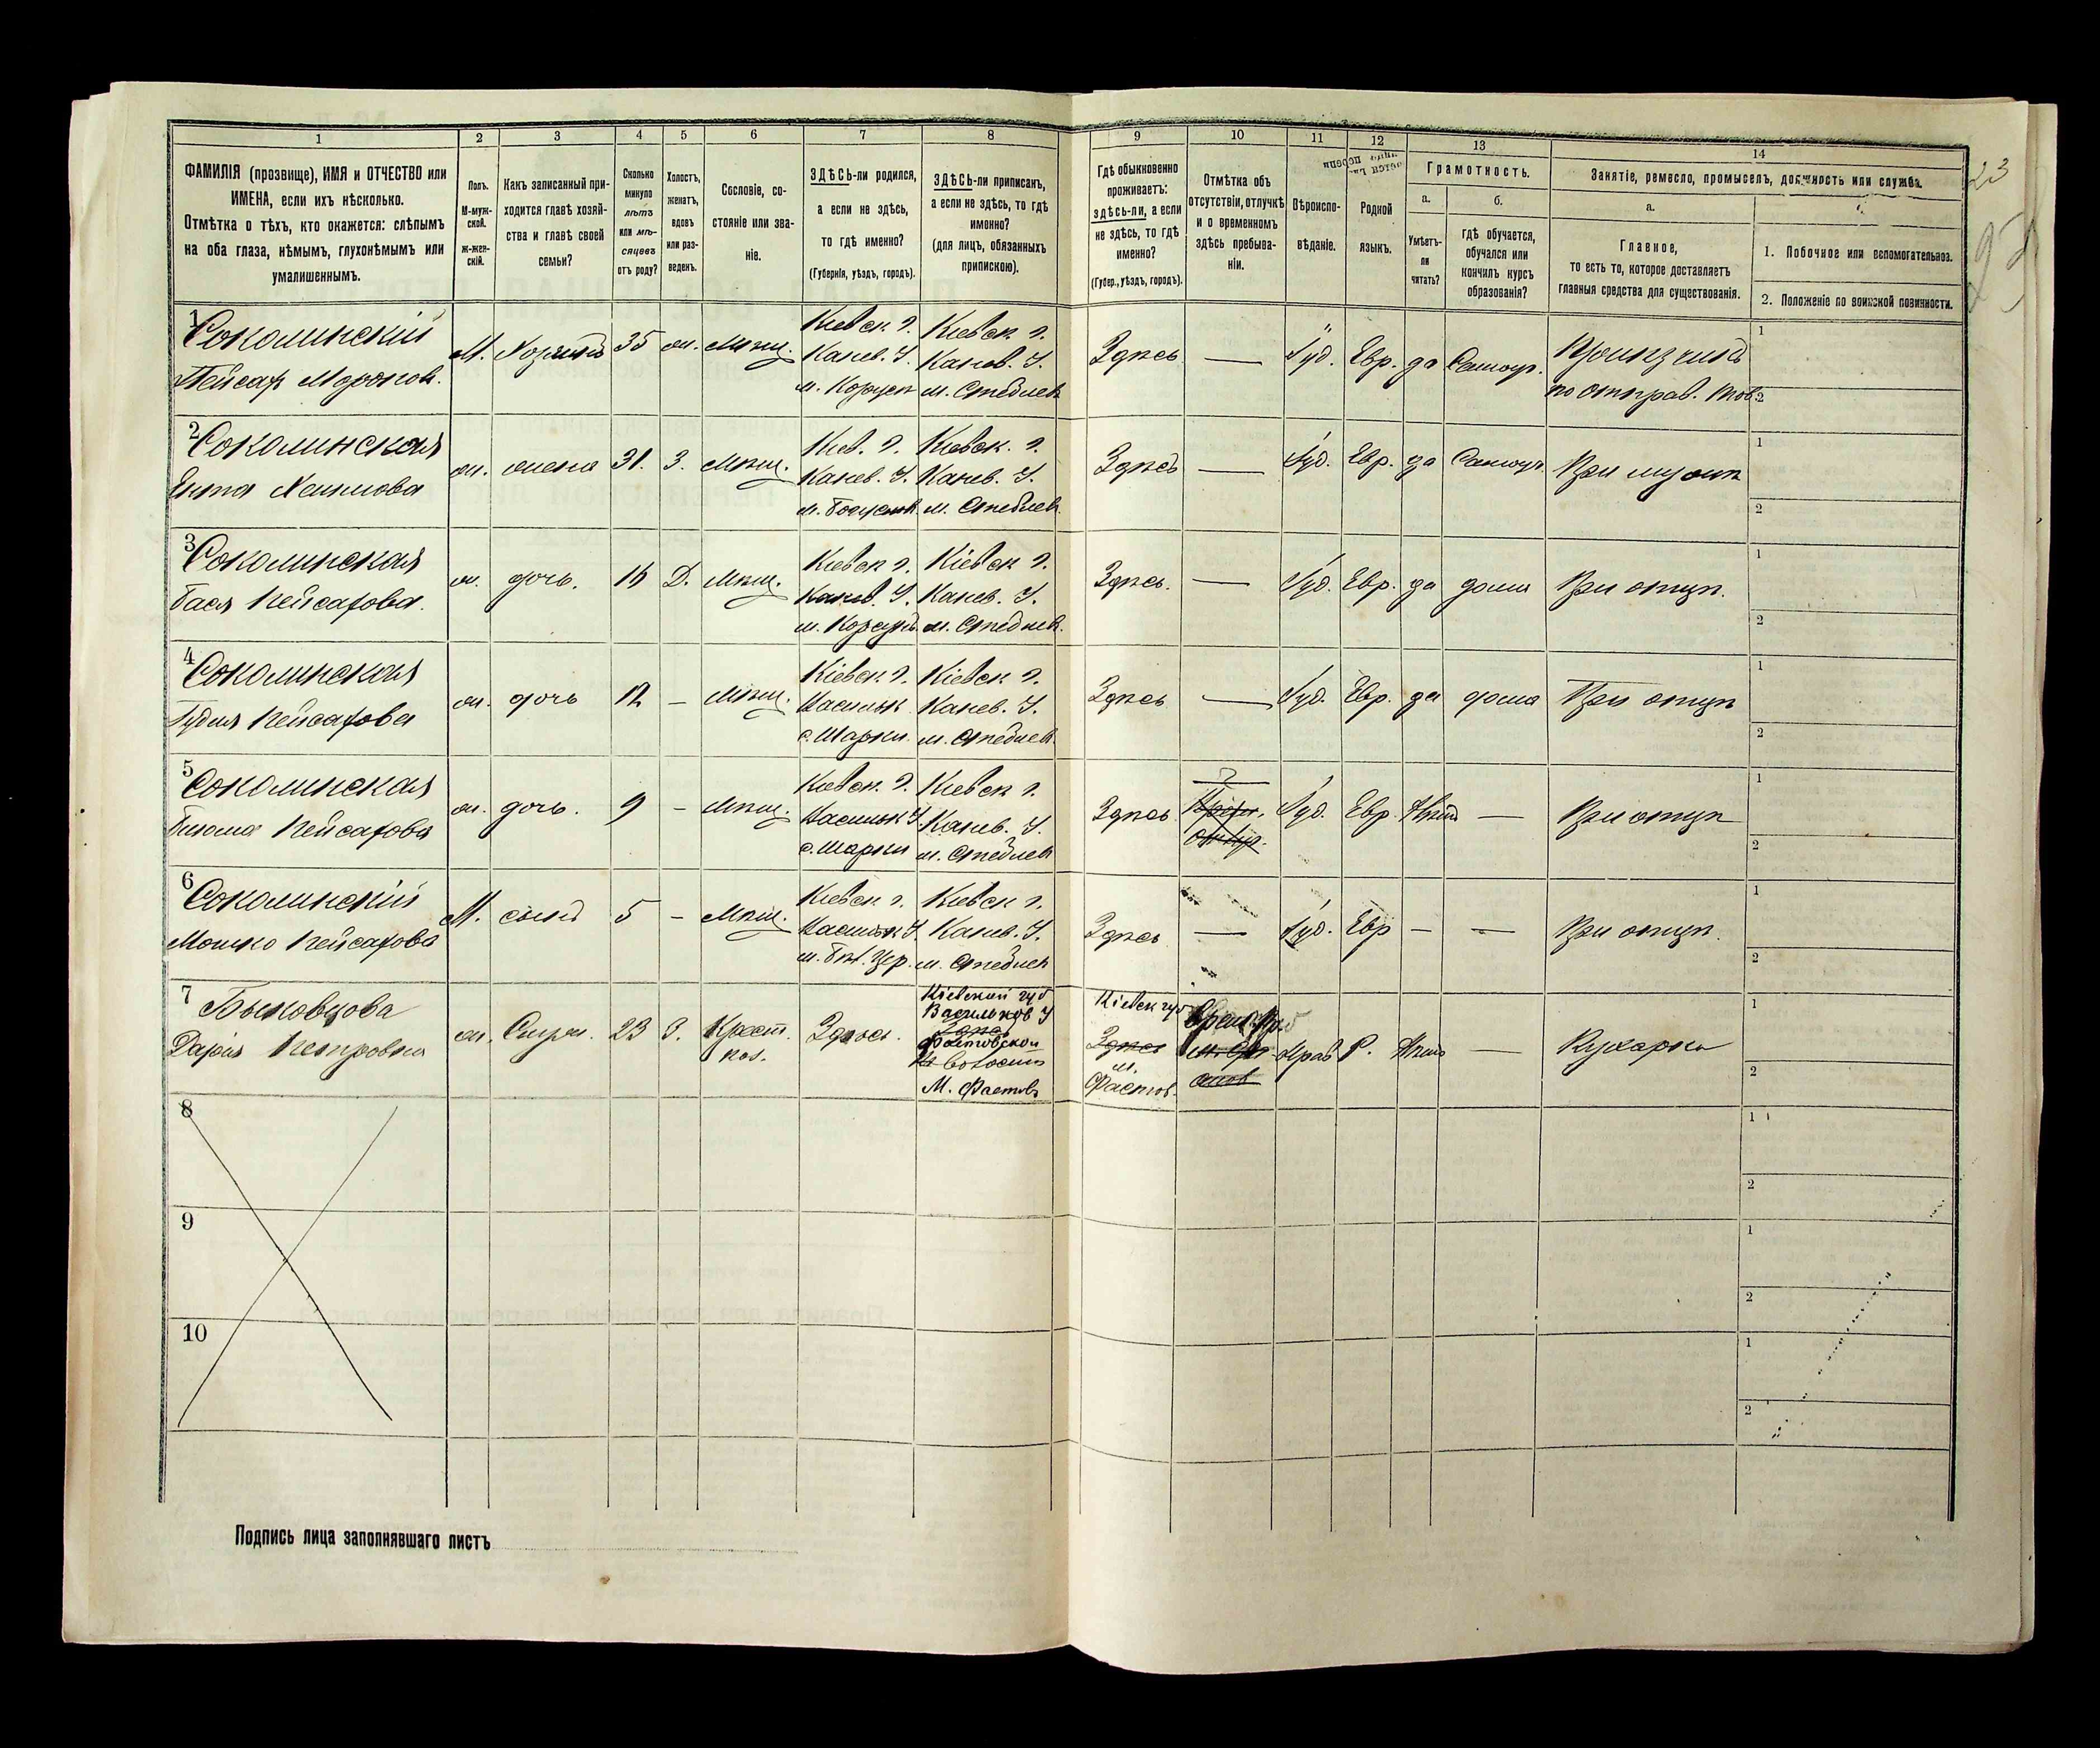 1 2 3 4 5 6 7 8 9 10 11 12 13 14
ФАМИЛІЯ (прозвище), ИМЯ и ОТЧЕСТВО или
ИМЕНА, если ихъ нѣсколько.
Отмѣтка о тѣхъ, кто окажется: слѣпымъ
на оба глаза, нѣмымъ, глухонѣмымъ или
умалишеннымъ.
Полъ.
М-муж-
ской.
ж-жен-
скій.
Какъ записанный при-
ходится главѣ хозяй-
ства и главѣ своей
семьи?
Сколько
минуло
лѣтъ
или мѣ-
сяцевъ
отъ роду?
Холостъ,
женатъ,
вдовъ
или раз-
веденъ.
Сословіе, со-
стояніе или зва-
ніе.
ЗДѢСЬ-ли родился,
а если не здѣсь,
то гдѣ именно?
(Губернія, уѣздъ, городъ).
ЗДѢСЬ-ли приписанъ,
а если не здѣсь, то гдѣ
именно?
(для лицъ, обязанныхъ
припискою).
Гдѣ обыкновенно
проживаетъ:
здѣсь-ли, а если
не здѣсь, то гдѣ
именно?
(Губер., уѣздъ, городъ).
Отмѣтка объ
отсутствіи, отлучкѣ
и о временномъ
здѣсь пребыва-
ніи.
Вѣроиспо-
вѣданіе.
Родной
языкъ.
Грамотность.
а.
Умѣетъ-
ли
читать?
б.
гдѣ обучается,
обучался или
кончилъ курсъ
образованія?
Занятіе, ремесло, промыселъ, должность или служба.
а.
Главное,
то есть то, которое доставляетъ
главныя средства для существованія.
1. Побочное или вспомогательное.
2. Положеніе по воинской повинности.
23
1 Соколинскій М. Хозяинъ 35 ж. Мѣщ. Кіевск г. Кіевск г. Здѣсь — Іуд. Евр. да Самоуч.
Пейсах Мордков. Канев. У. Канев. У. по отправ. тов.
м. Корсун м. Стеблев
2 Соколинская ж. жена 31. З. Мѣщ. Кіев. г. Кіевск. г. Здѣсь — Іуд. Евр. да Самоуч. При мужѣ
Ента Хаимова Канев. У. Канев. У.
м. Богуслав м. Стеблев
3 Соколинская ж. дочь. Д. Мѣщ. Кіевск г. Кіевск г. Здѣсь. — Іуд. Евр. да дома При отцѣ.
Бася Пейсахова. Канев. У. Канев. У.
м. Корсунь м. Стеблев.
4 Соколинская ж. дочь 12 — Мѣщ. Кіевск. г. Кіевск г. Здѣсь — Іуд. Евр. да дома При отцѣ
Пейсахова Васильк. Канев. У.
с. Шарки м. Стеблев.
5 Соколинская ж. дочь. 9 — Мѣщ. Кіевск. г. Кіевск г. Здѣсь Іуд. Евр. Нѣтъ — При отцѣ
Пейсахова Васильк У. Канев. У.
с. Шарки м. Стеблев
6 Соколинскій М. сынъ 5 — Мѣщ. Кіевск г. Кіевск г. Здѣсь — Іуд. Евр — — При отцѣ.
Мошко Пейсахова Васильк У. Канев. У.
м. Бѣл. Цер. м. Стеблев
7 Быковцова ж. 23 З. Крест. Здѣсь. Кіевской губ Кіевск губ Прав Р. Нѣтъ — Кухарка
Дарія Петровна Васильков У Здѣсь
Фастовской м.
волости Фастов.
М. Фастовъ
8
9
10
1
2
1
2
1
2
1
2
1
2
1
2
1
2
1
2
1
2
1
2
Подпись лица заполнявшаго листъ